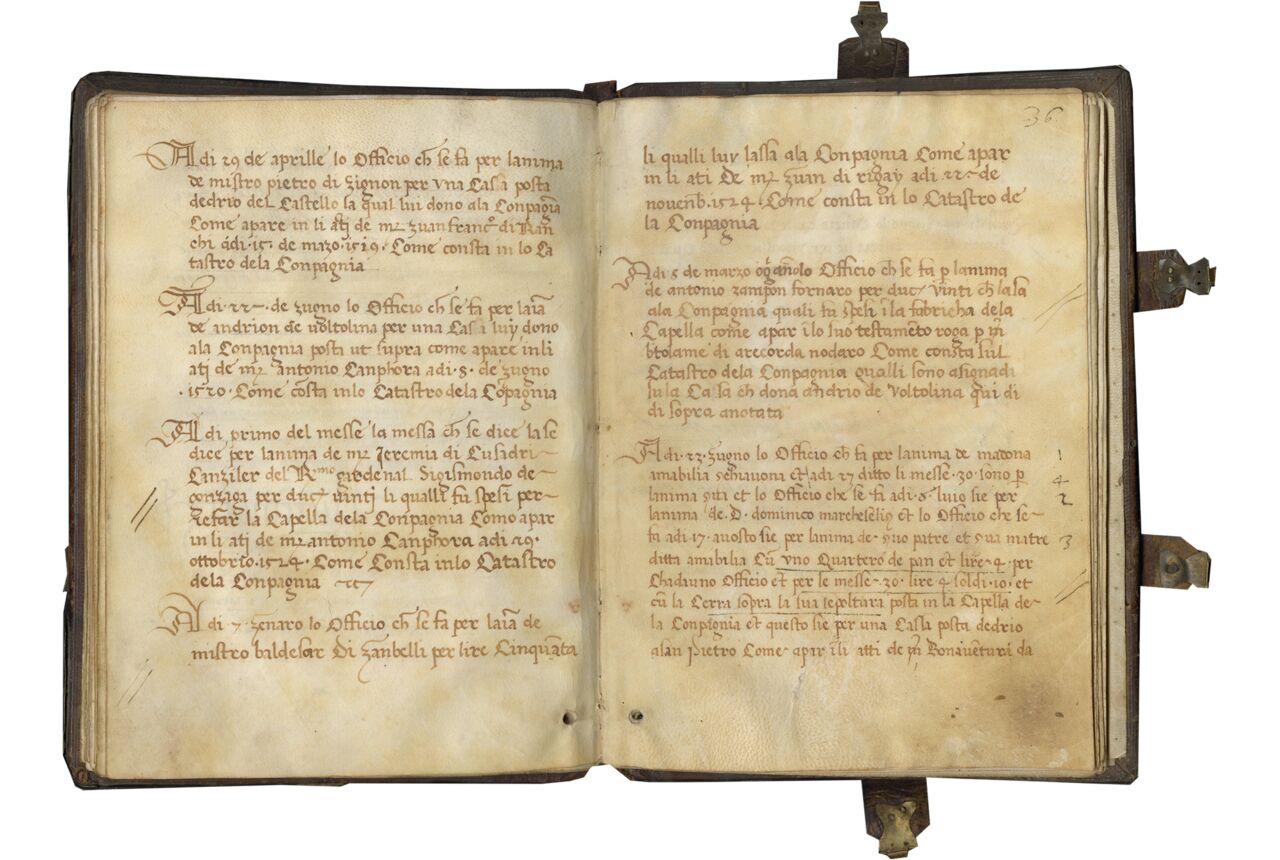 Adi 29 de aprille lo Officio ch se fa per lanima
de mistro pietro di zignon per vna Cassa posta
dedrio del Castello la qual lui dono ala Conpagīa
Come apare in li atj de mr zuanfranco di Ran
chi adi .15. de mazo .1519. Come consta in lo Ca
tastro dela Conpagnia
Adi 22 de zugno lo Officio ch se fa per laīa
de indrion de voltolina per una Cassa luy dono
ala Conpagnia posta ut supra come apare in li
atj de mr antonio Canphora adi .8. de zugno
.1520. Come cōsta inlo Catastro dela Cōpagnia
Adi primo del messe la messa ch se dice la se
dice per lanima de mr Jeremia di Cusadri
Canziler del Rmo gardenal Sigismondo de
gonziga per duc vintj li qualli fu spesi per
refar la Capella dela Conpagnia Como apar
in li atj de mr antonio Canphora adi 29.
ottobrio.1524. Come Consta inlo Catastro
dela Conpagnia
Adi 7. zenaro lo Officio ch se fa per laīa de
mistro baldesar Di zanbelli per lire Cinquāta
36
li qualli luy lassa ala Conpagnia Come apar
in li ati De mr zuan di rigay adi 22 de
novenb.1524. Come consta in lo Catastro de
la Conpagnia
Adi 5 de marzo ogn̄anolo Officio ch se fa p lanima
de antonio zampon fornaro per duc vinti ch lassa
ala Conpagnia quali fu spesi ī la fabricha dela
Capella come apar ī lo suo testamēto roga p mr
btolame di arecorda nodaro Come consta sul
Catastro dela Conpagnia qualli sono asignadi
su la Cassa ch dona andrio de Voltolina qui di
di sopra anotata
Adi 23 zugno lo Officio ch fa per lanima de madona 1
amabilia schiavona et adi 27 ditto li messe .30. sono p 4
lanima suti et lo Officio che se fa adi .8. luio sie per 2
lanima de .D. dominico marchesely et lo Officio che se
fa adi 17. auosto sie per lanima de suo patre et sua matre 3
ditta amabilia Cū vno Quartero de pan et lire 4. per
Chadiuno Officio et per le messe 30. lire 4 soldi .10. et
cū la Cerra sopra la sua sepoltura posta in la Capella de
la Conpagnia et questo sie per una Cassa posta dedrio
a san pietro Come apar ī li atti de mr Bonauēturi da